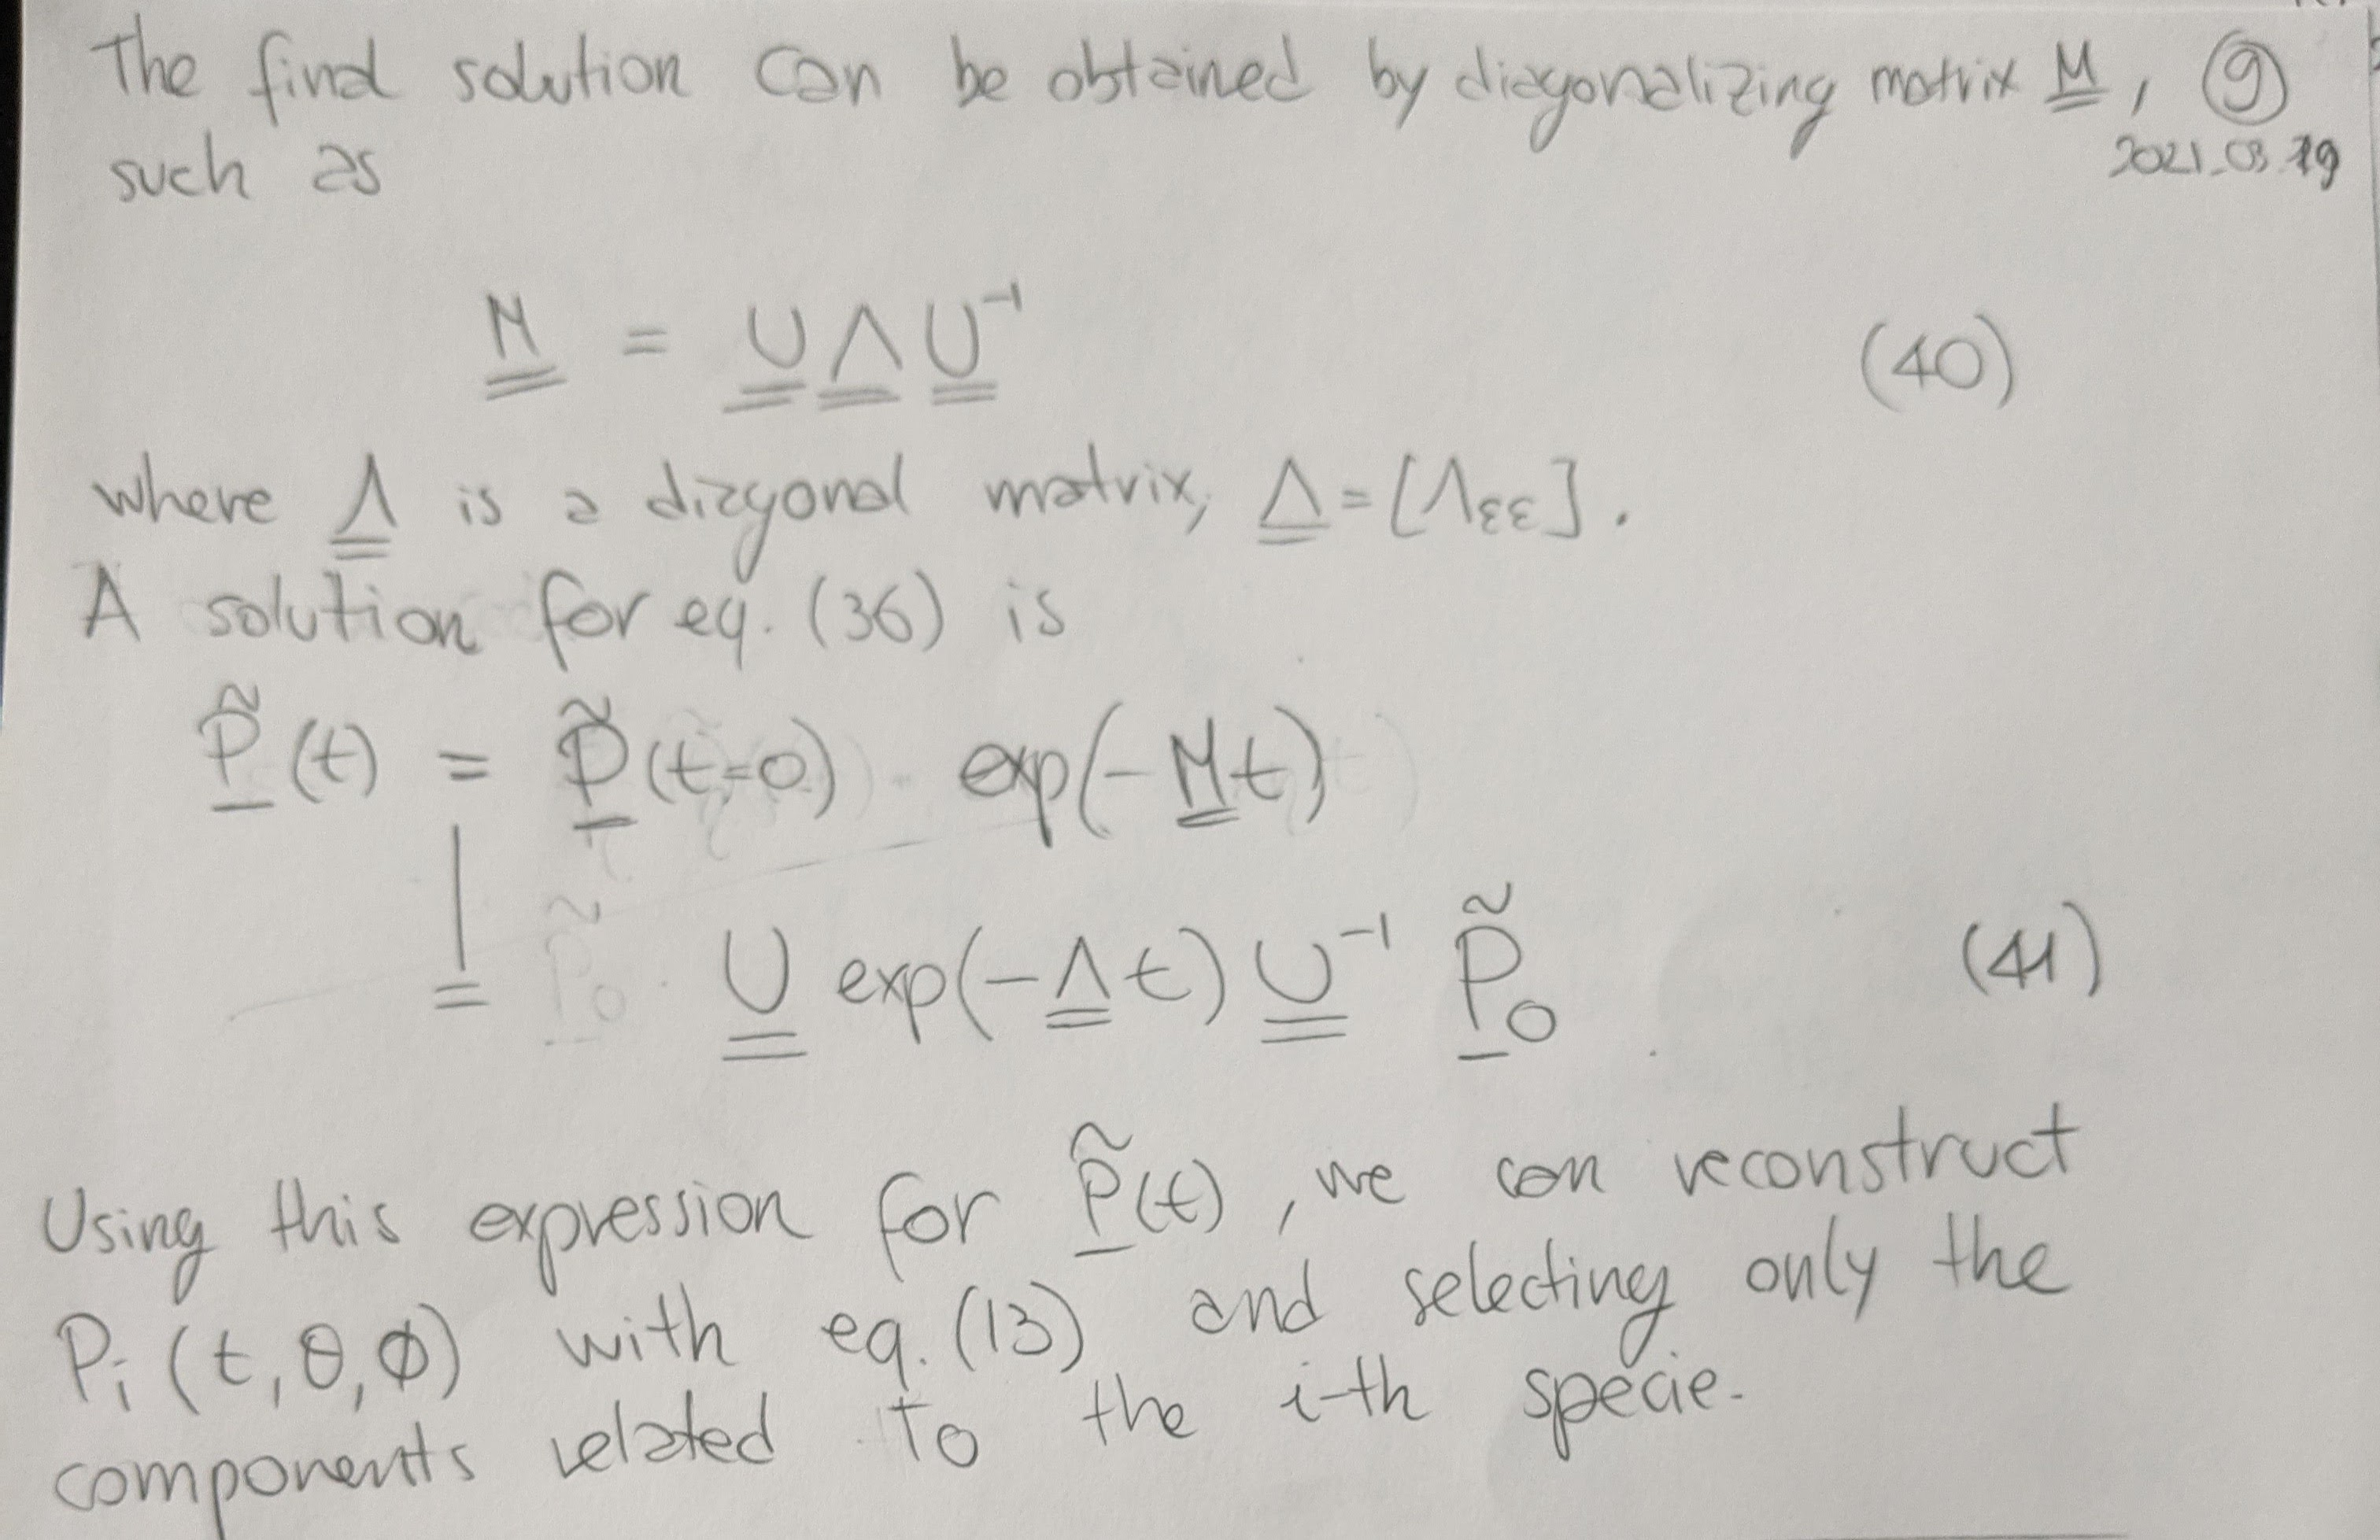 The final solution can be obtained by diagonalizing matrix M̳, ⑨
such as 2021.03.19
M̳ = U̳ Λ̳ U̳⁻¹ (40)
where Λ̳ is a diagonal matrix, Λ̳ = [Λεε].
A solution for eq. (36) is
P̲̃(t) = P̲̃(t=0) exp(-M̳t)
= U̳ exp(-Λ̳t) U̳⁻¹ P̲̃₀ (41)
Using this expression for P̲̃(t), we can reconstruct
Pᵢ(t,θ,ϕ) with eq. (13) and selecting only the
components related to the i-th specie.